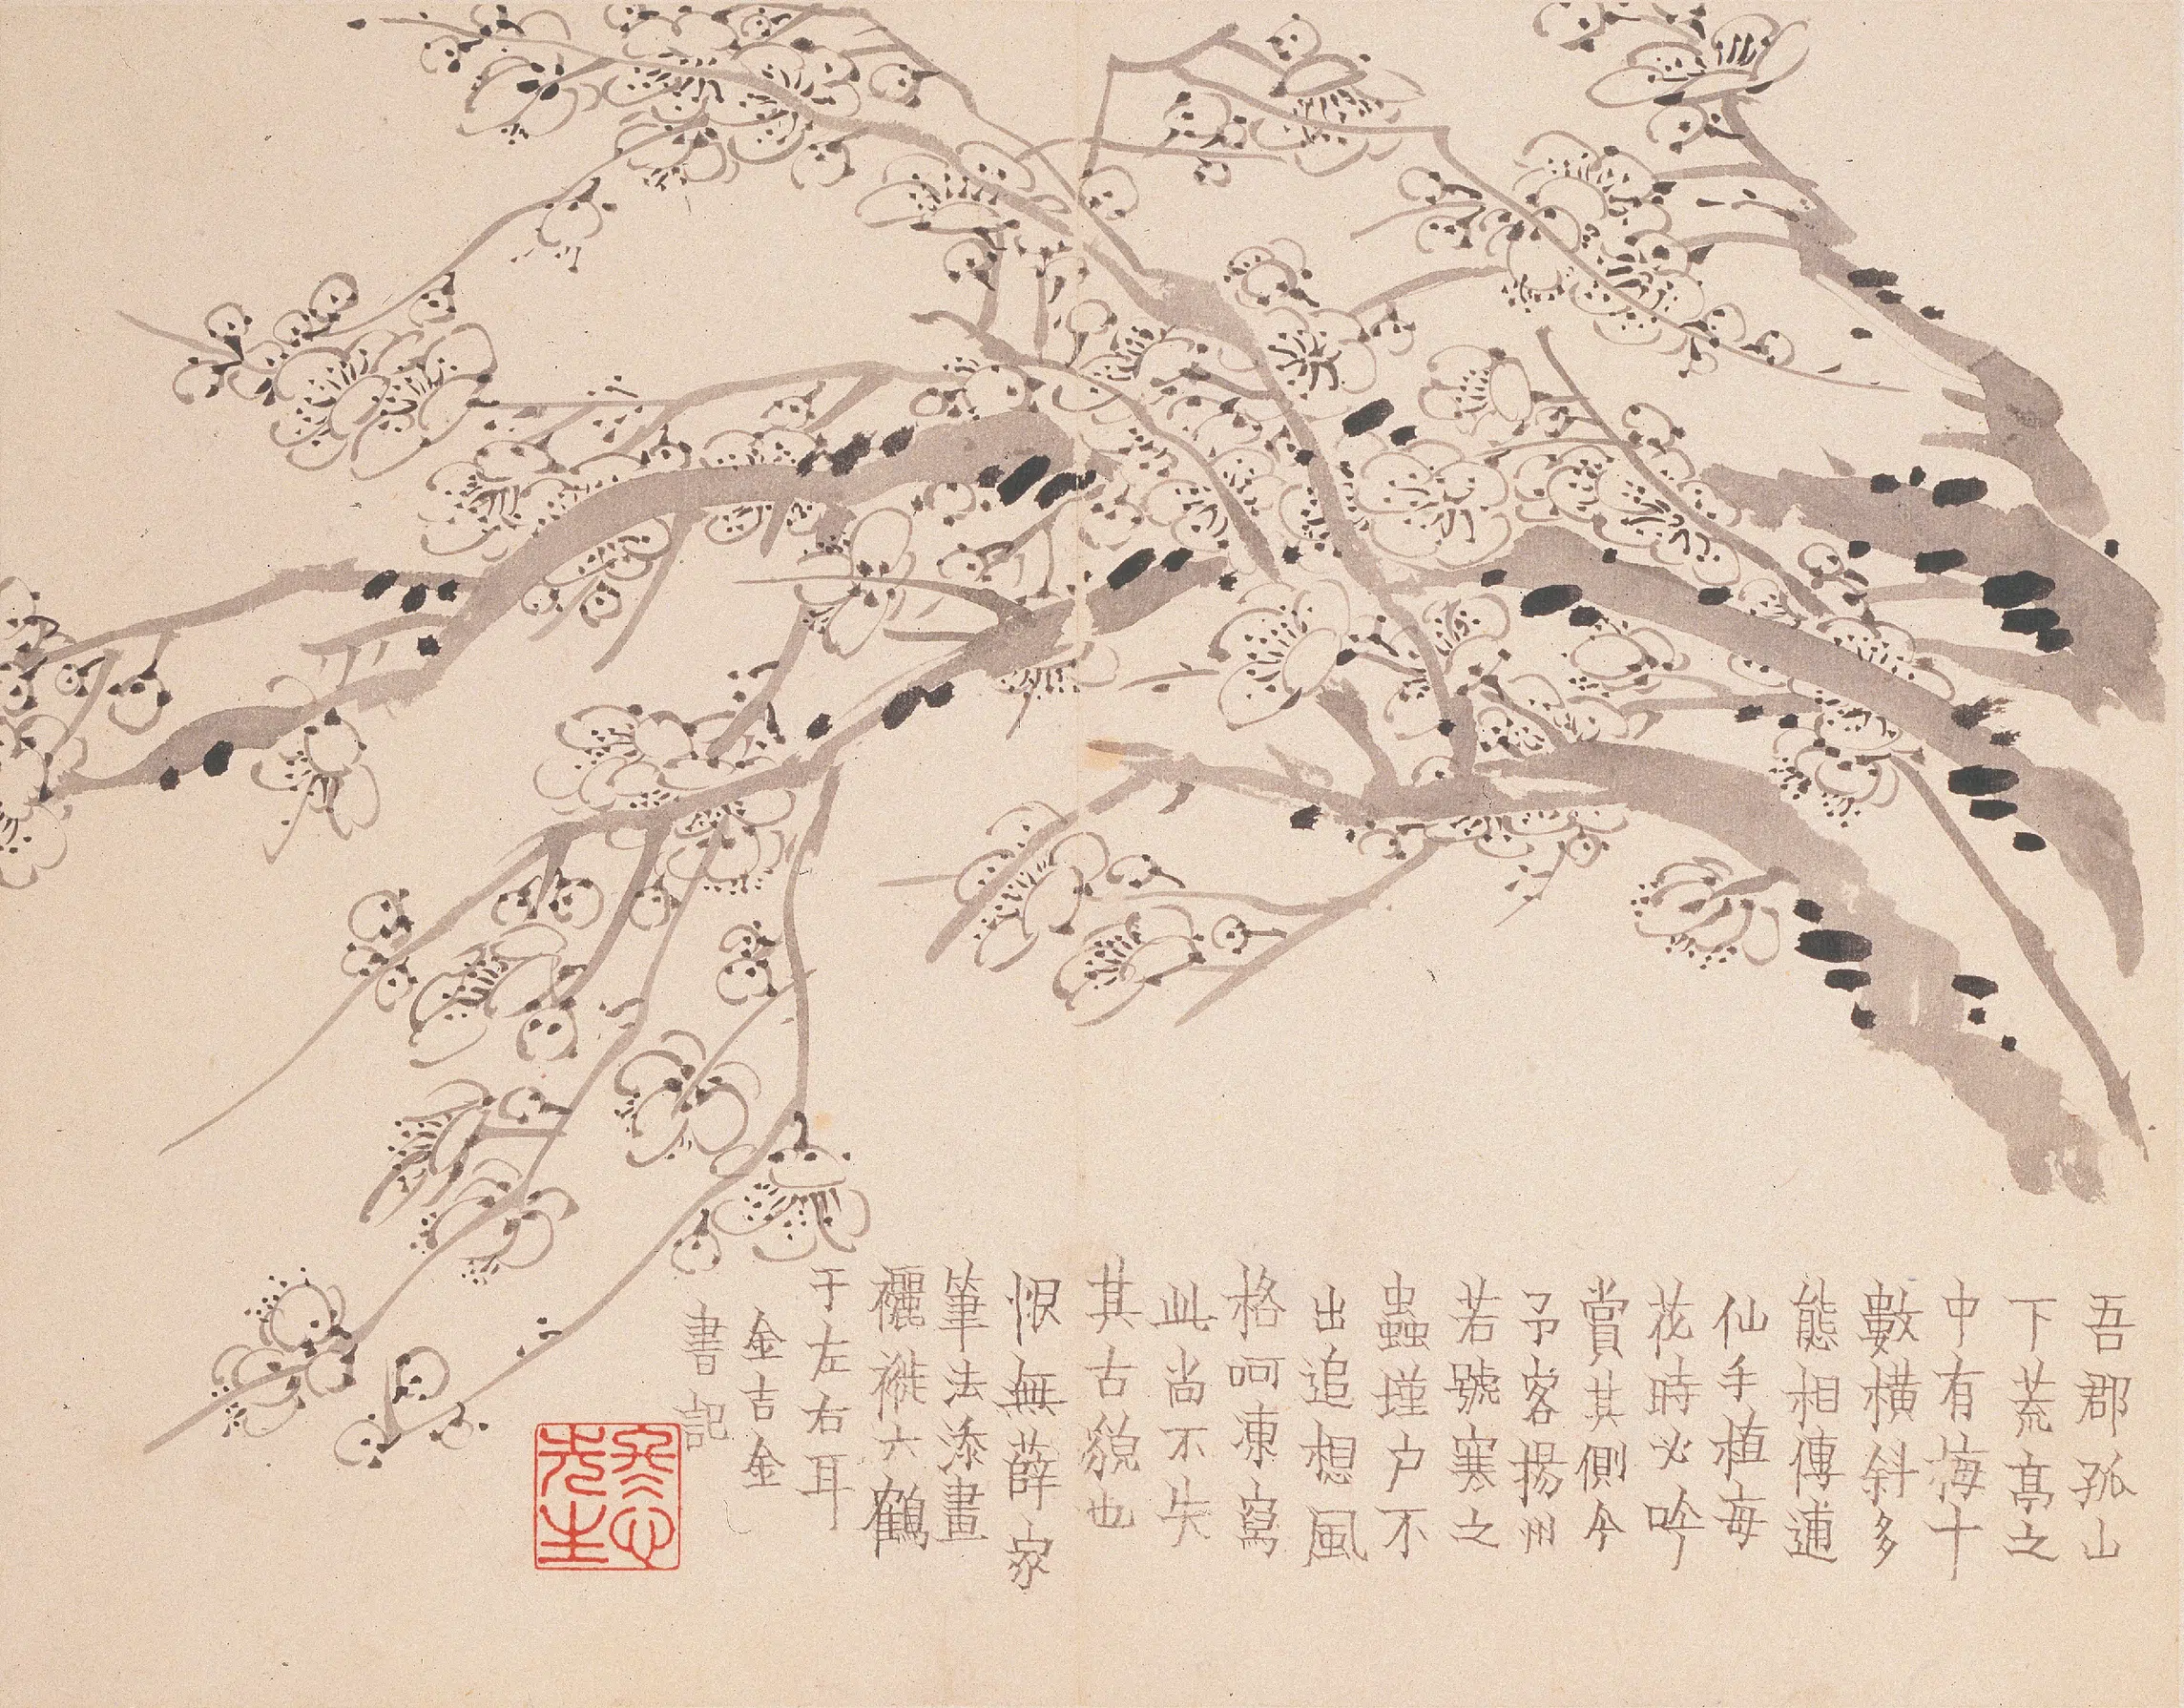 吾郡孤山
下荒亭之
中有梅十
數橫斜多
態相傳逋
仙手植每
花時必吟
賞其側今
予客揚州
若號寒之
蟲墐户不
出追想風
格呵凍寫
此尚不失
其古貌也
恨無薛家
筆法添畫
褵褷六鶴
于左右耳
金吉金
書記
冬心先生